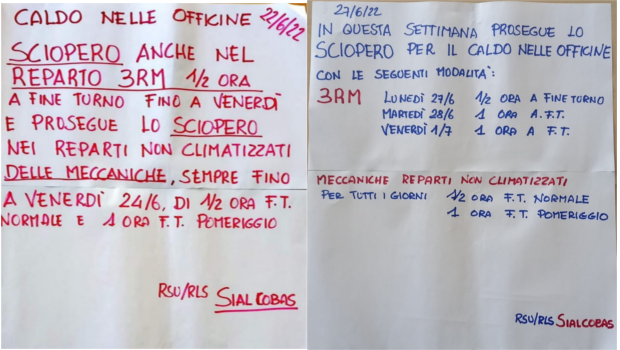 CALDO NELLE OFFICINE 22/6/22
SCIOPERO ANCHE NEL
REPARTO 3RM 1/2 ORA
A FINE TURNO FINO A VENERDÌ
E PROSEGUE LO SCIOPERO
NEI REPARTI NON CLIMATIZZATI
DELLE MECCANICHE, SEMPRE FINO
A VENERDÌ 24/6, DI 1/2 ORA F.T.
NORMALE E 1 ORA F.T. POMERIGGIO
RSU/RLS SIALCOBAS
27/6/22
IN QUESTA SETTIMANA PROSEGUE LO
SCIOPERO PER IL CALDO NELLE OFFICINE
CON LE SEGUENTI MODALITA':
3RM LUNEDÌ 27/6 1/2 ORA A FINE TURNO
MARTEDÌ 28/6 1 ORA A.F.T.
VENERDÌ 1/7 1 ORA A F.T.
MECCANICHE REPARTI NON CLIMATIZZATI
PER TUTTI I GIORNI 1/2 ORA F.T. NORMALE
1 ORA F.T. POMERIGGIO
RSU/RLS SIALCOBAS